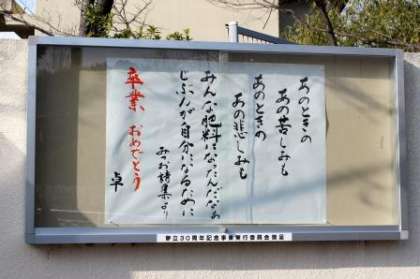 あのときの
あの苦しみも
あのときの
あの悲しみも
みんな肥料になったんだなあ
じぶんが自分になるために
みつお詩集より
卒業 おめでとう
卓
創立30周年記念事業実行委員会贈呈